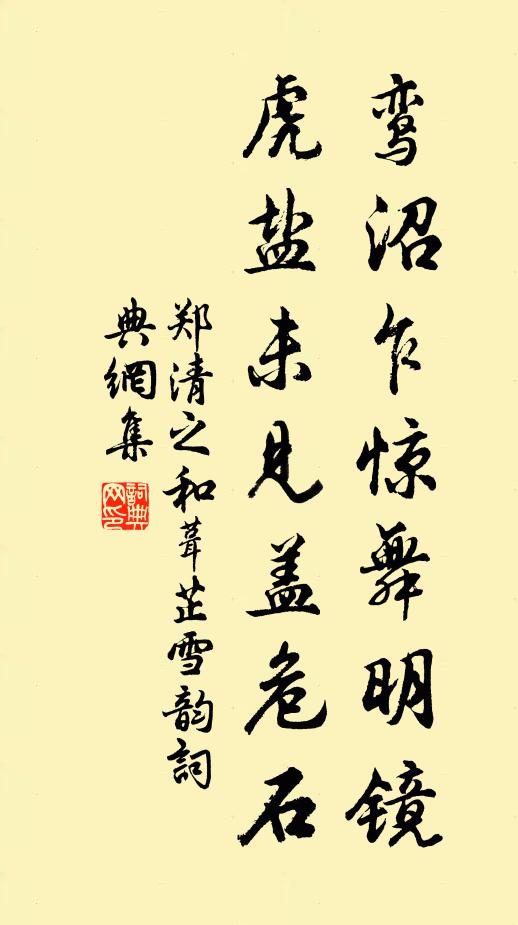 鸾沼乍惊舞明镜
虎盐未见盖危石
郑清之和葺芷雪韵詞
典網集
詞典
网印